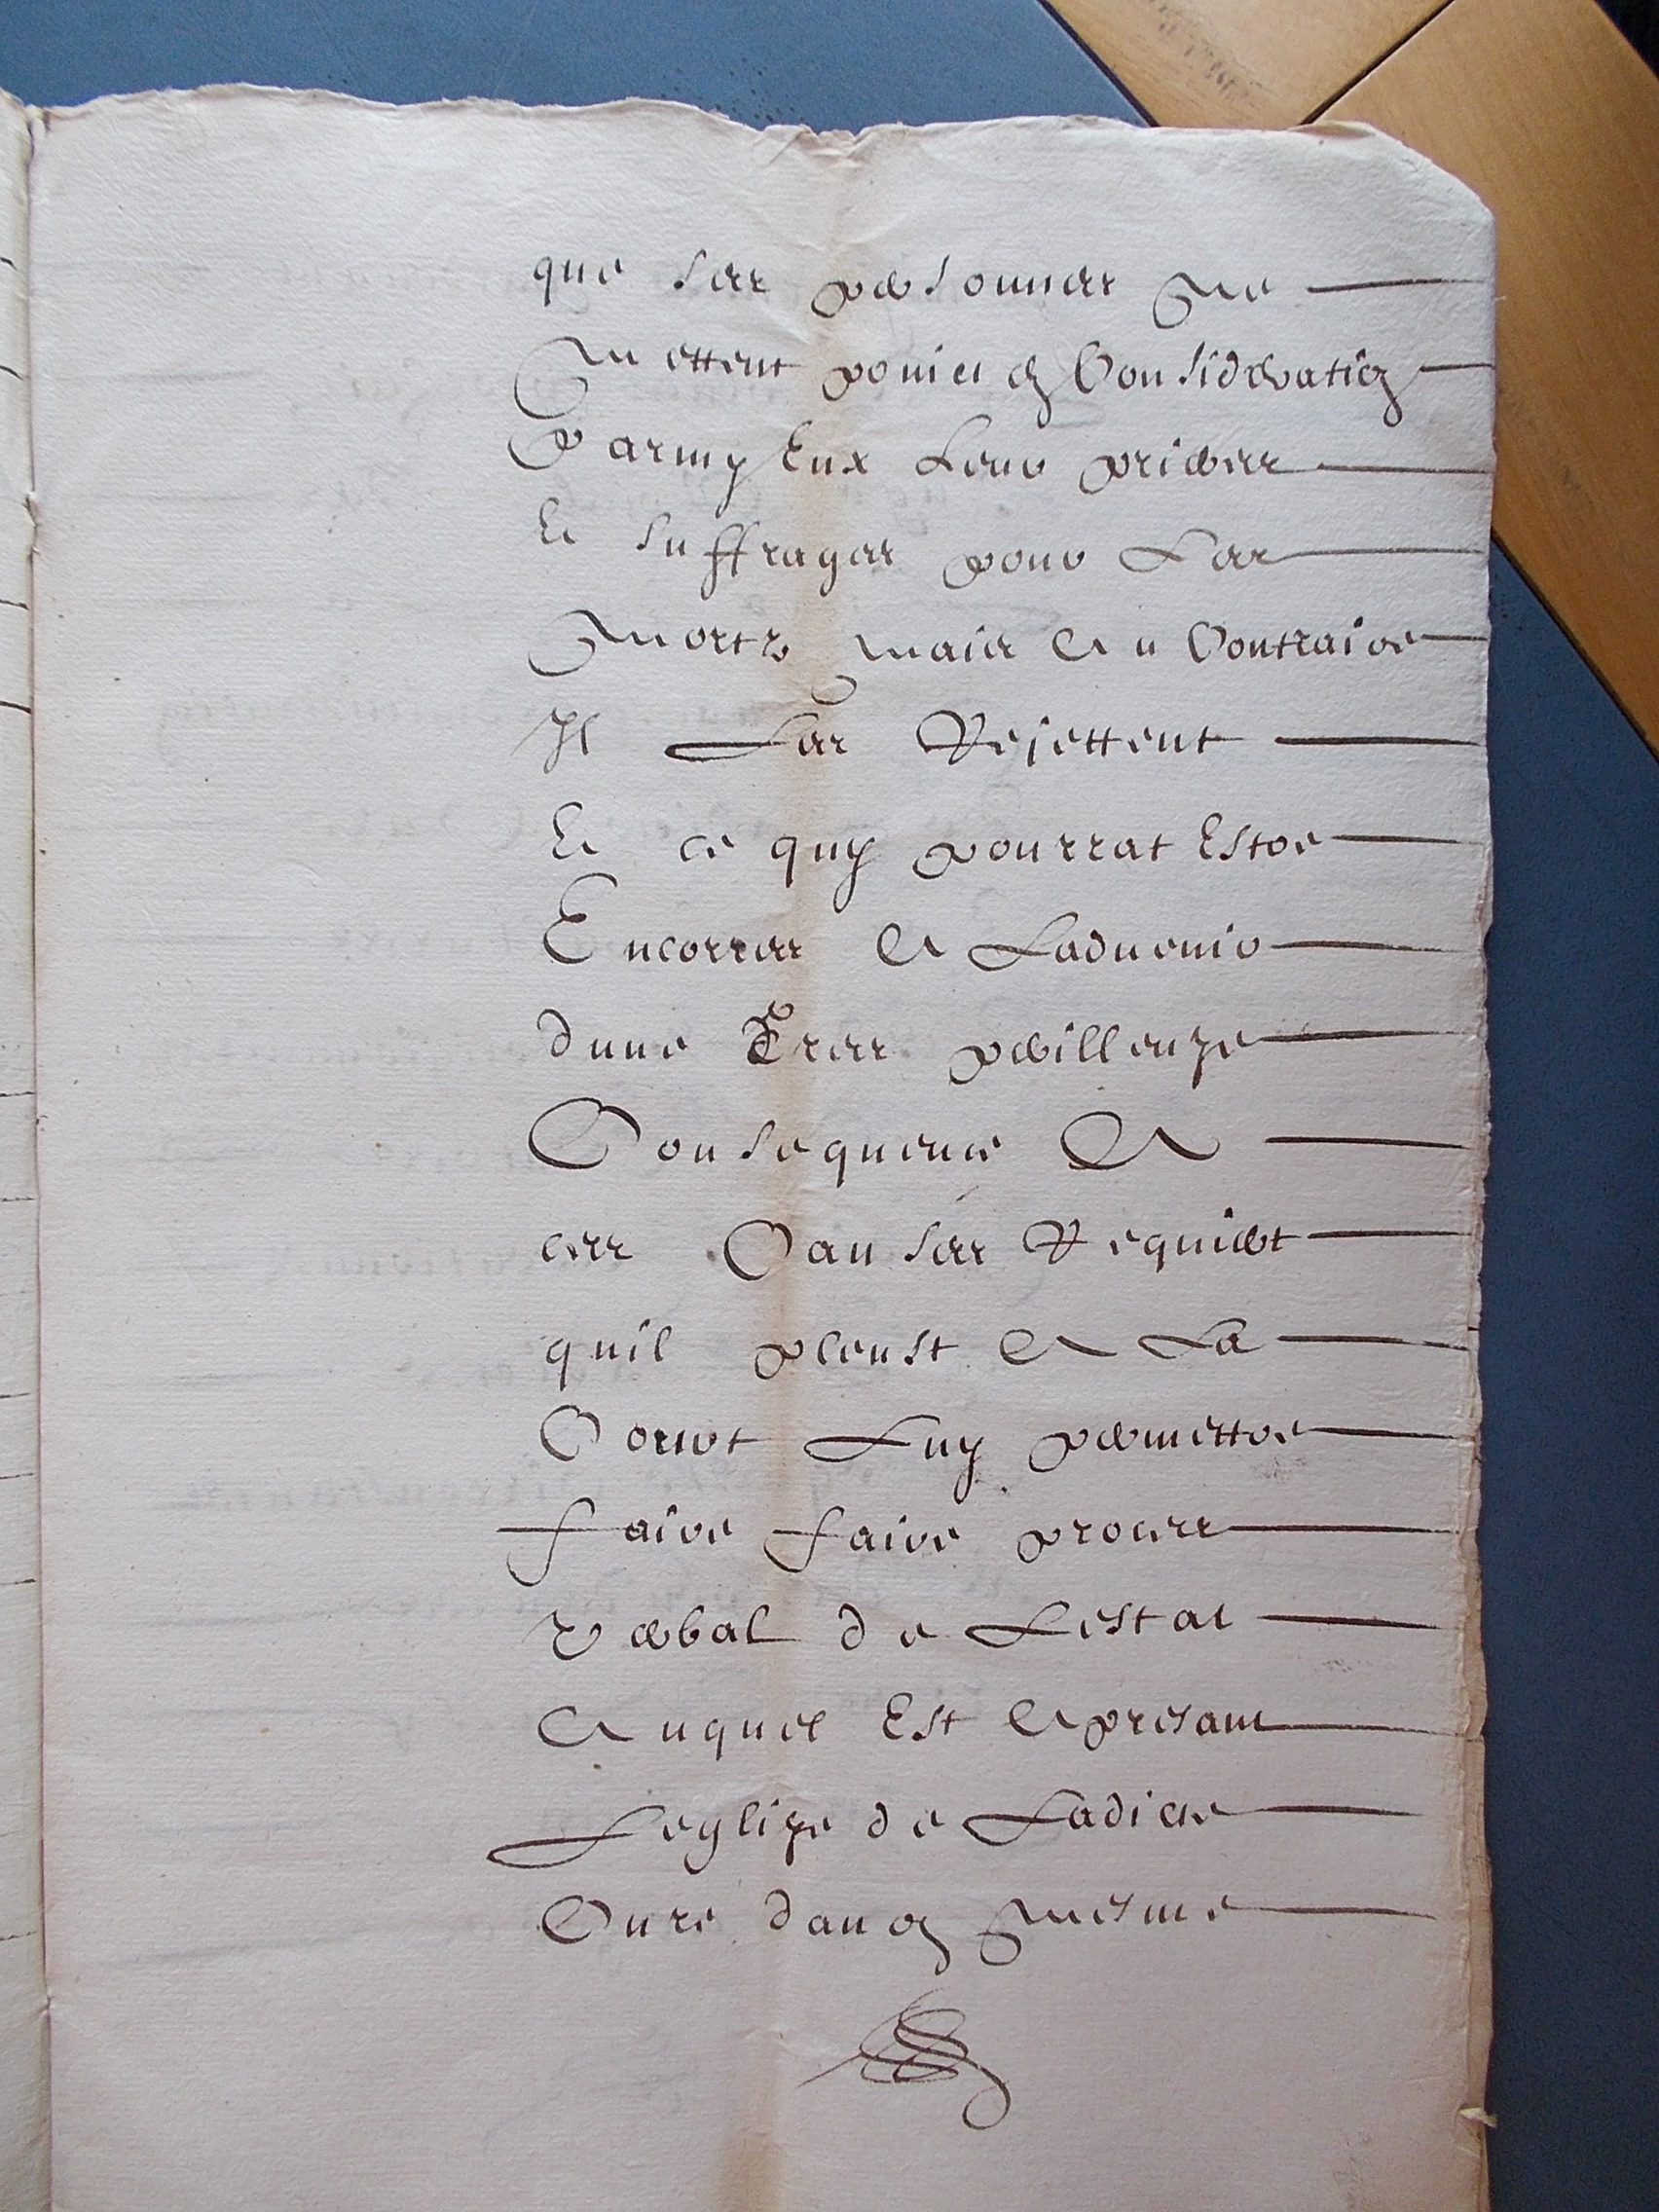 que ses personnes Ne
Mettent poinct en Consideration
Parmy Eux Leurs prieres
Et suffrages pour Les
Mortz mais Au Contraire
Il Les Rejettent
Et ce quy pourrat Estre
Encorres A Ladvenir
dune Tres perilleuze
Consequence A
ces Causes Requiert
quil pleust A La
Court Luy permettre
faire faire proces
verbal de Lestat
Auquel Est Apresant
Leglize de Ladicte
Cure dancy Mesme